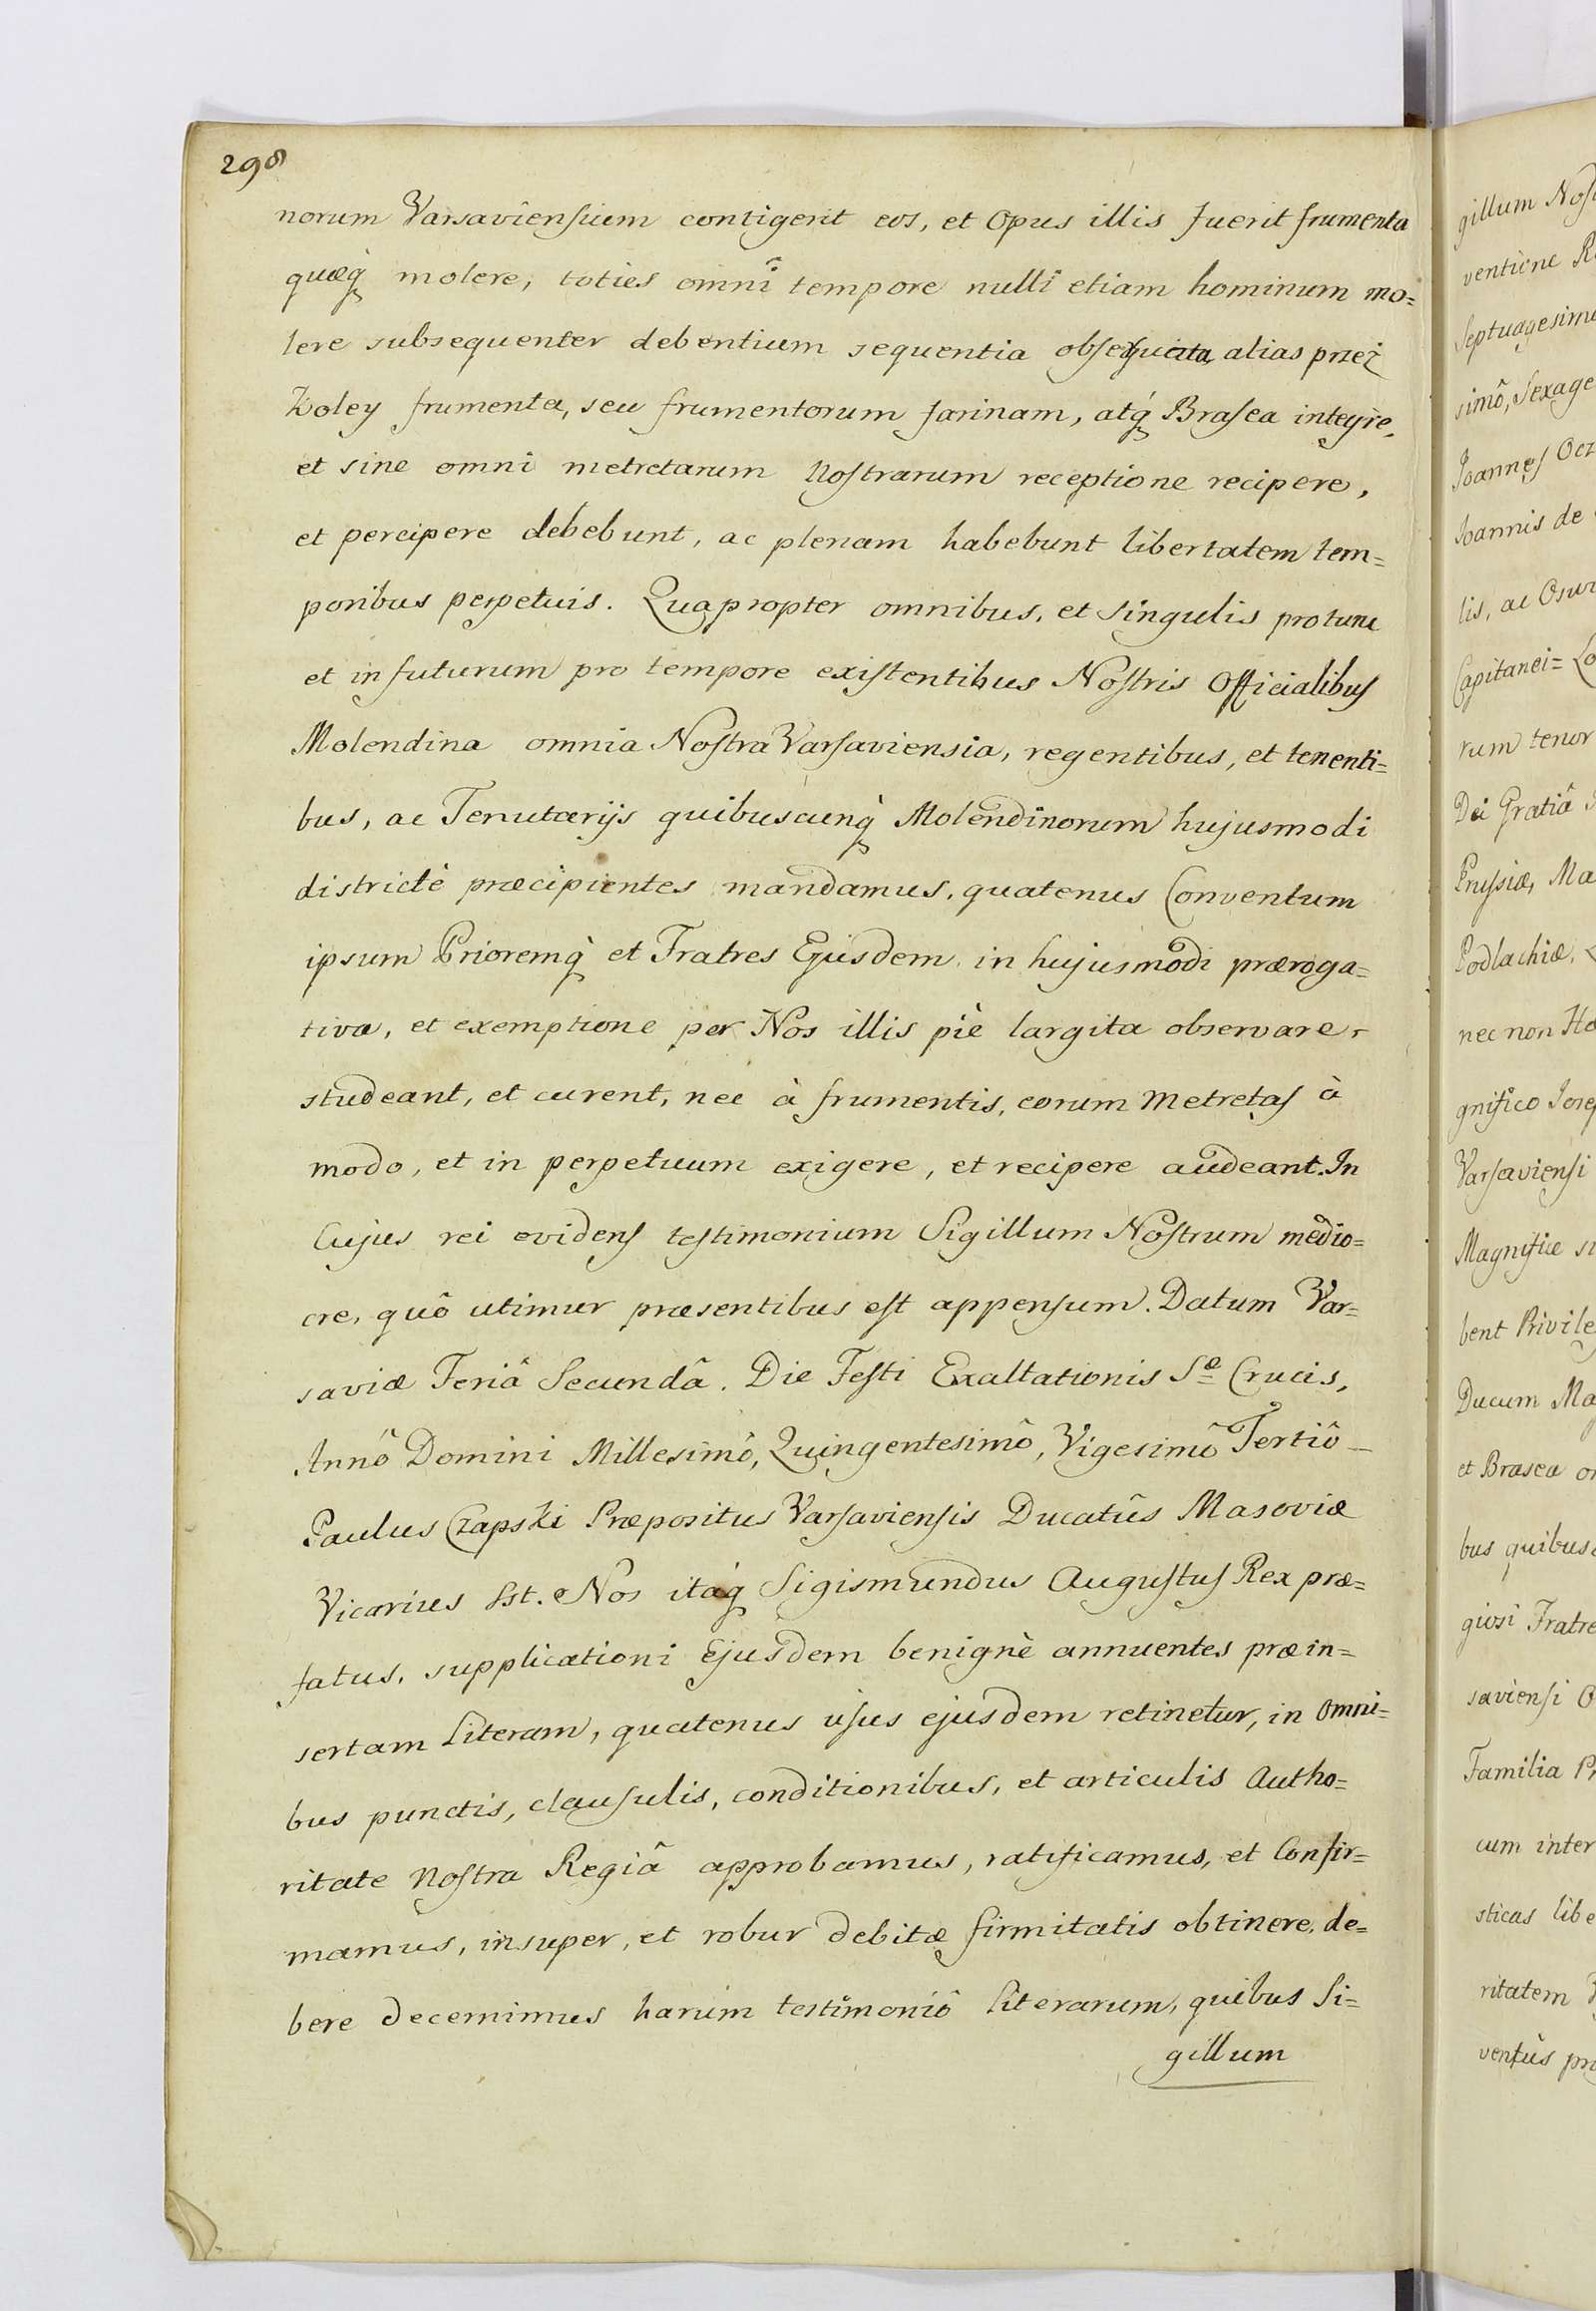 298
norum Varsaviensium contigerit eos, et Opus illis fuerit frumenta
quæq̀ molere, toties omnî tempore nulli etiam hominum mo=
lere subsequenter debentium sequentia alias przez
Koley frumenta, seu frumentorum farinam, atq́ Brasea integre,
et sine omni metretarum Nostrarum receptione recipere,
et percipere debebunt, ac plenam habebunt libertatem tem=
poribus perpetuis. Quapropter omnibus, et singulis pro tunc
et in futurum pro tempore existentibus Nostris Officialibus
Molendina omnia Nostra Varsaviensia, regentibus, et tenenti=
bus, ac Tenutarijs quibuscunq̀ Molendinorum hujusmodi
districtè præcipientes mandamus, quatenus Conventum
ipsum Prioremq̀ et Fratres Ejusdem in hujusmodi præroga=
tiva, et exemptione per Nos illis piè largita observare,
studeant, et curent, nec à frumentis, eorum Metretas à
modo, et in perpetuum exigere, et recipere audeant. In
Cujus rei evidens testimonium Sigillum Nostrum medio=
cre, quô utimur præsentibus est appensum. Datum Var=
saviæ Feriâ Secundâ. Die Festi Exaltationis Sæ Crucis,
Annô Domini Millesimô, Quingentesimô, Vigesimô Tertiô
Paulus Czapski Præpositus Varsaviensis Ducatûs Masoviæ
Vicarius sst. Nos itaq́ Sigismundus Augustus Rex præ=
fatus, supplicationi Ejusdem benignè annuentes præin=
sertam Literam, quatenus usus ejusdem retinetur, in Omni=
bus punctis, clausulis, conditionibus, et articulis Autho=
ritate Nostra Regiâ approbamus, ratificamus, et Confir=
mamus, insuper, et robur debitæ firmitatis obtinere, de=
bere decernimus harum testimoniô Literarum, quibus Si=
gillum
gillum
ventione
septuagesim
simô, Sexage
Joannes
Joannis de
lis, ac
Capitanei=
rum tenor
Dei Gratiâ
Prussiæ, Ma
Podlachiæ,
nec non
gnifico
Varsaviensi
Magnificæ
bent Privile
Ducum Ma
et Brasea
bus
giosi Fratre
saviensi
Familia
cum inter
sticas libe
ritatem
ventùs